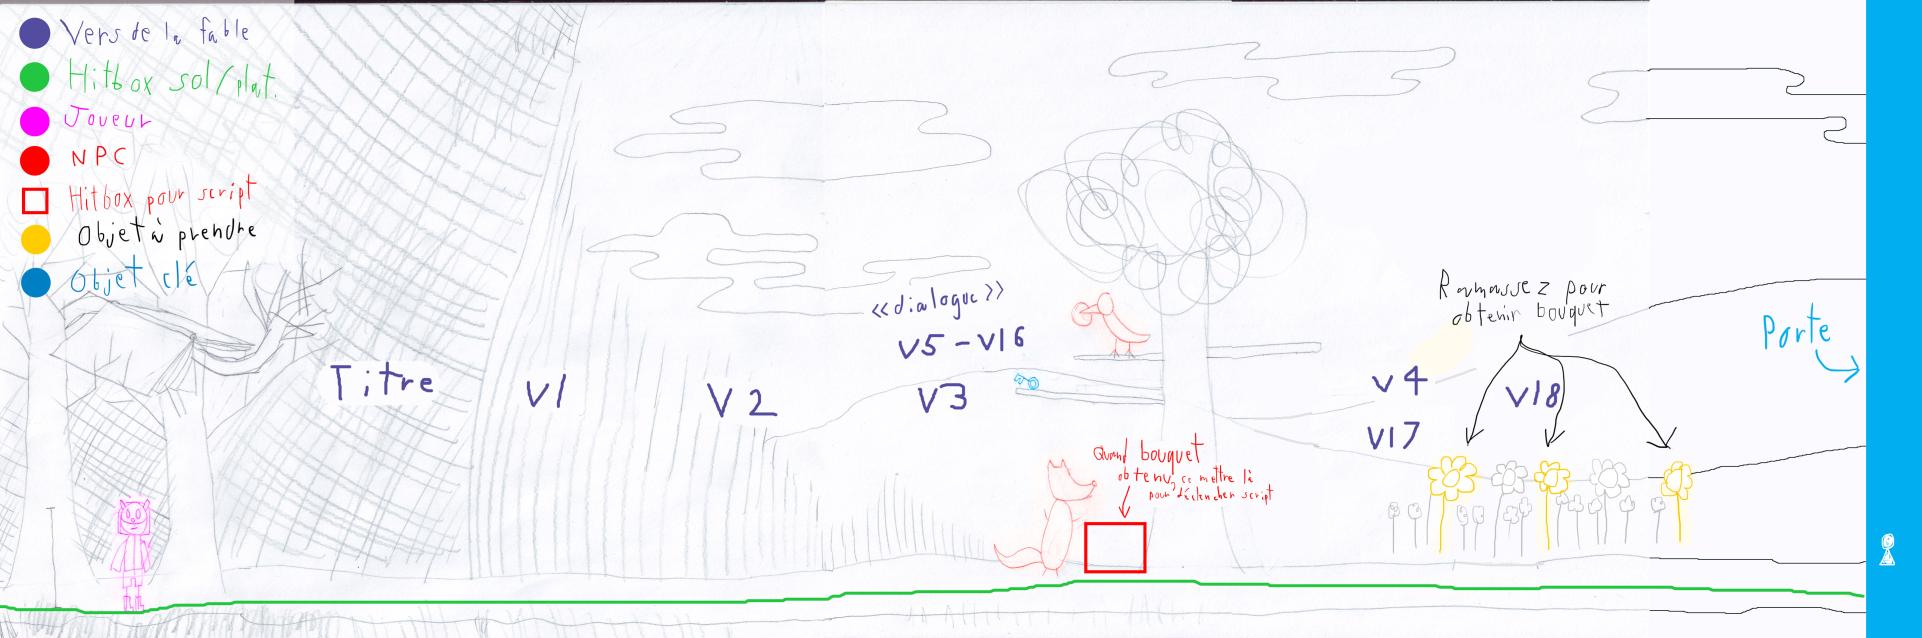 Vers de la fable
Hitbox sol/plat.
Joueur
NPC
Hitbox pour script
Objet à prendre
Objet clé
Titre
V1
V2
<<dialogue>>
V5 - V16
V3
Quand bouquet
obtenu, se mettre là
pour déclencher script
V4
V17
Ramassez pour
obtenir bouquet
V18
Porte